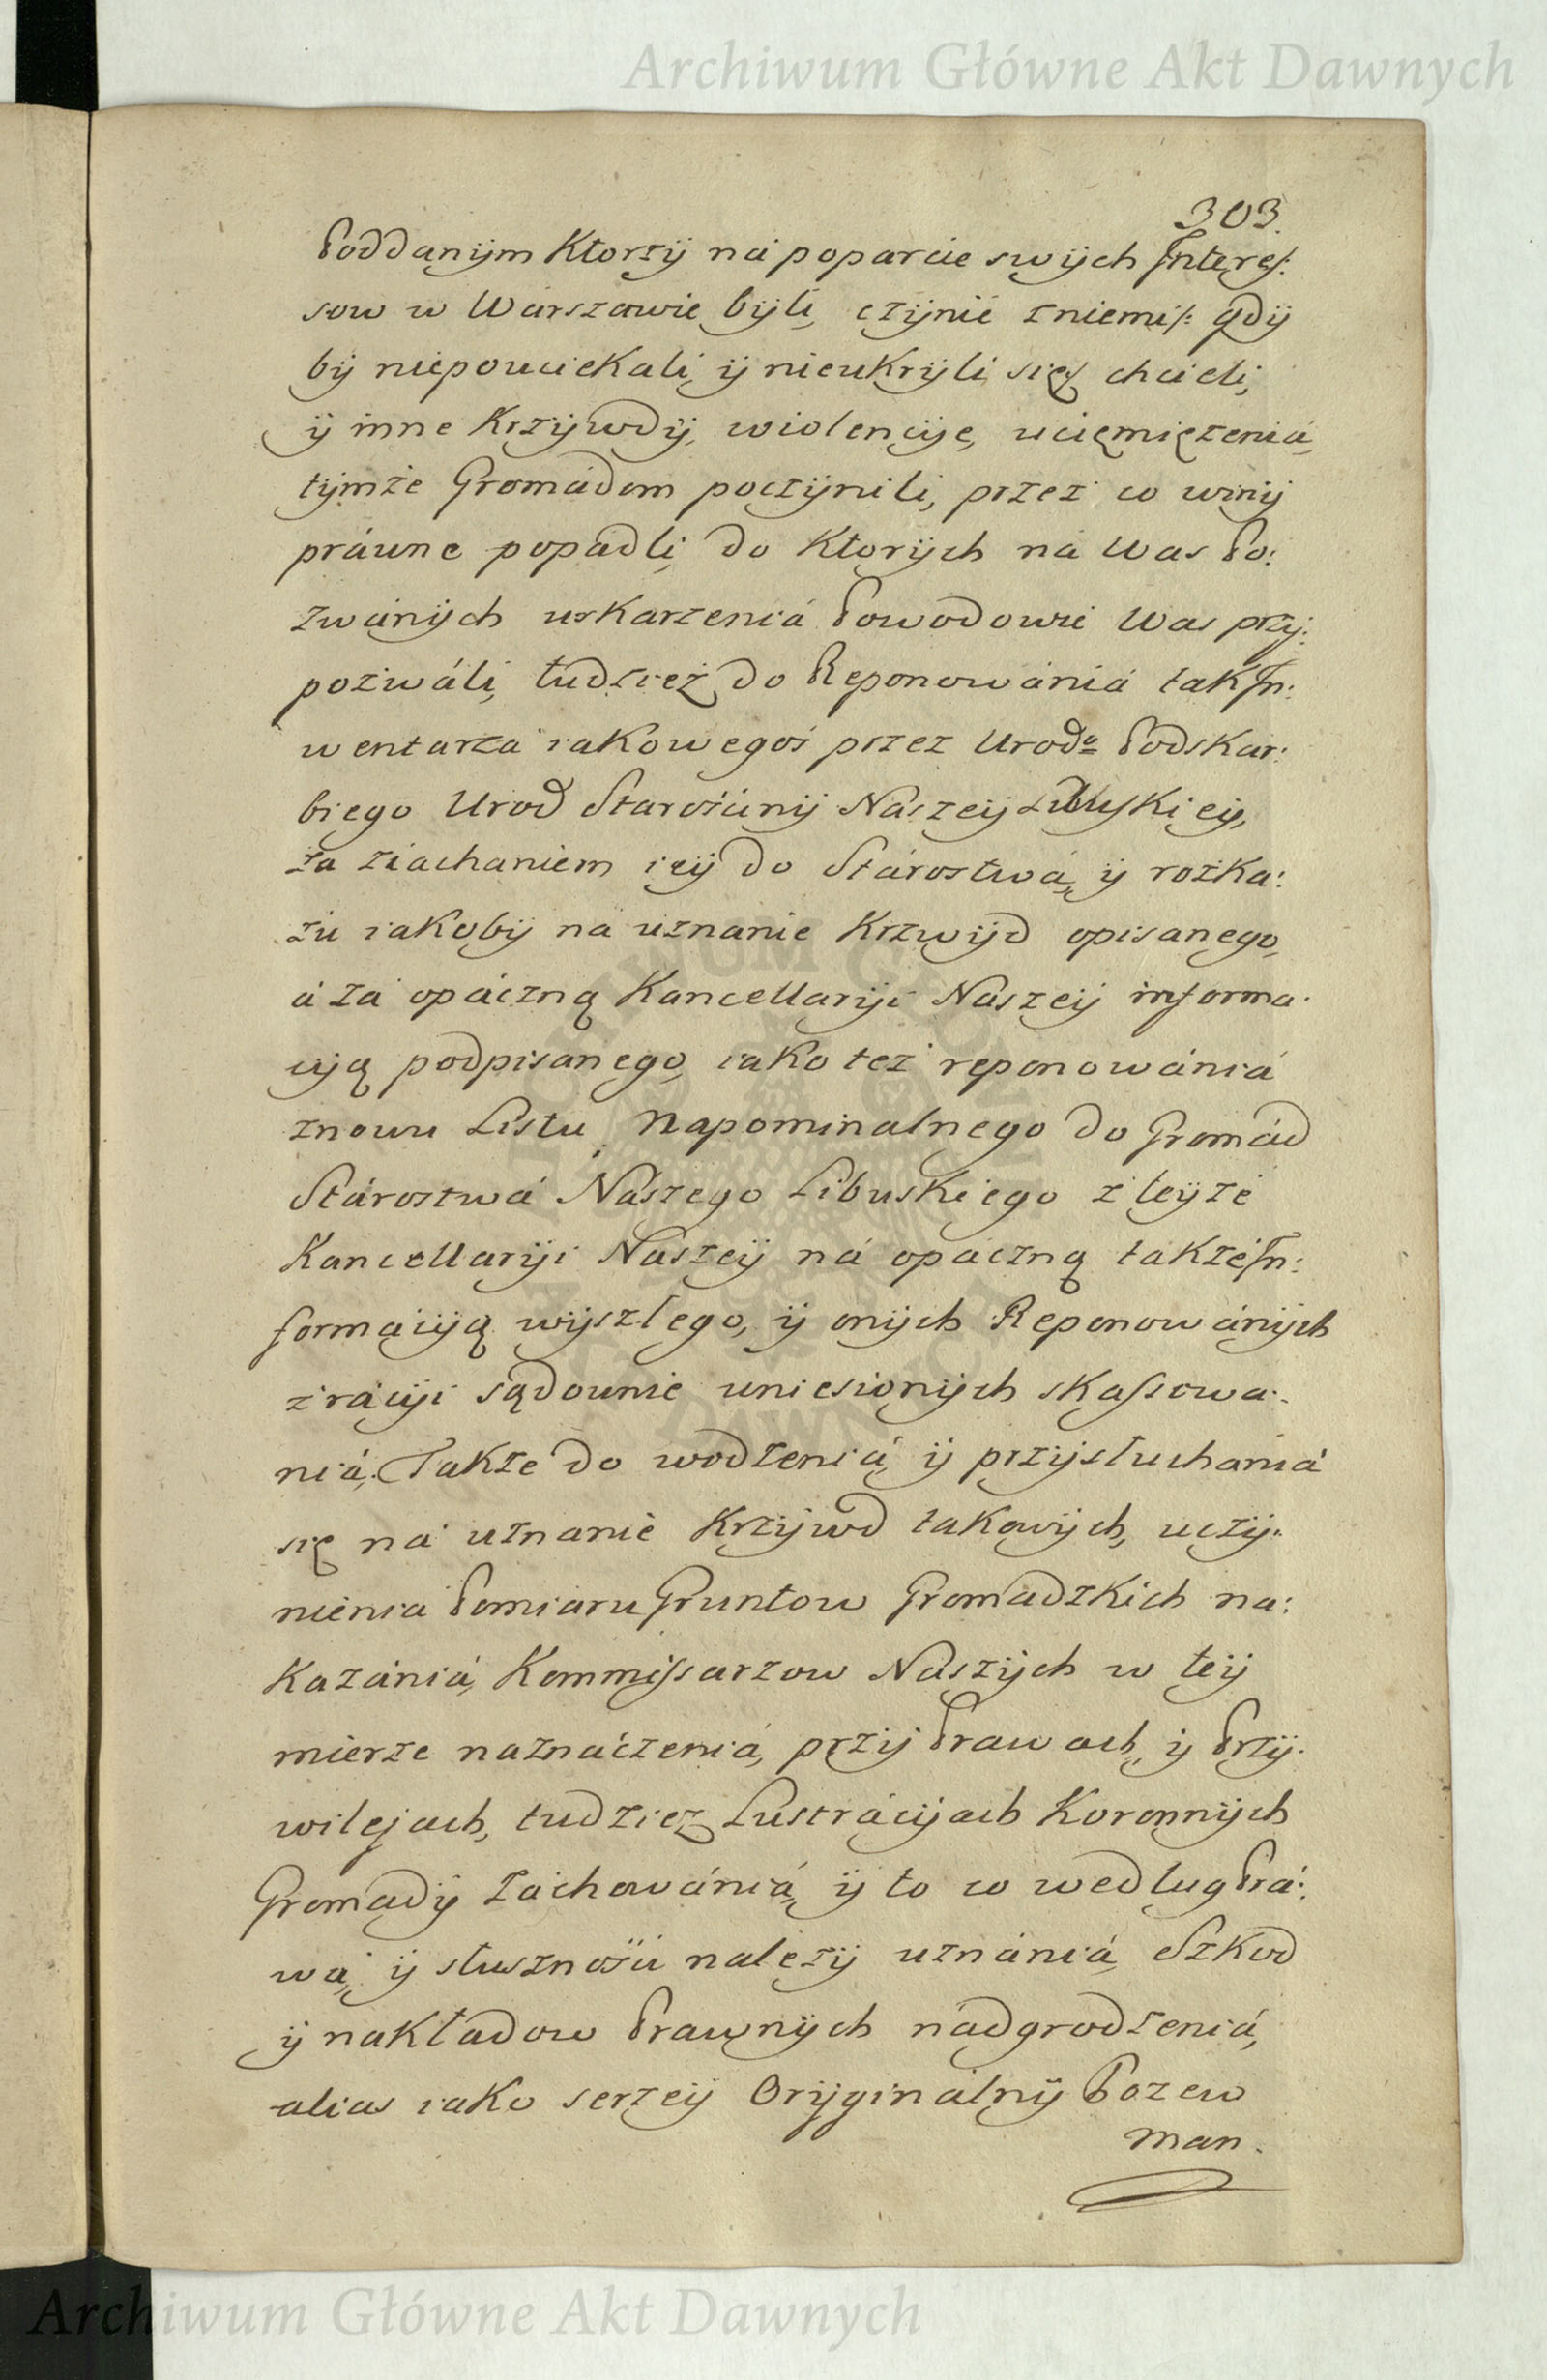 Archiwum Główne Akt Dawnych
303.
Poddanÿm Ktorzÿ ná poparcie swÿch Interes:
sow w Warszawie bÿli, czÿnić zniemi /: gdÿ
bÿ niepouciekali, ÿ nieukrÿli się :/ chcieli,
ÿ inne Krzÿwdÿ, wiolencÿe, uciemięzeniá,
tÿmże Gromádom poczÿnili, przez co winÿ
práwne popadli, do Ktorÿch ná Was Po:
zwánÿch uskarzeniá Powodowie Was przÿ:
pozwáli, tudziesz do Reponowániá tak In:
wentarza iakowegoś przez Urod° Podskar:
biego Urod Starościnÿ Naszeÿ Libuskieÿ,
za ziachaniem ieÿ do Stárostwá, ÿ rozka:
zu iakobÿ na uznanie Krzwÿd opisanego,
á zá opáczną Kancellarÿi Naszeÿ informa:
cÿą podpisanego, iako też reponowániá
znowu Listu Napominalnego do Gromád
Stárostwá Nászego Libuskiego z teÿże
Kancellarÿi Naszeÿ ná opáczną takżé In:
formácÿą wÿszłego, ÿ onÿch Reponowánÿch
z rácÿi sądownie uniesionÿch skassowa:
niá, Także do wodzeniá, ÿ przÿsłuchániá
się ná uznanie Krzÿwd takowÿch, uczÿ:
nienia Pomiaru Gruntow Gromadzkich na:
Kazániá, Kommissarzow Nászÿch w teÿ
mierze naznáczeniá, przÿ Prawach, ÿ Przÿ:
wilejach, tudziesz Lustrácÿach Koronnÿch
Gromadÿ záchowániá, ÿ to co według Prá:
wá, ÿ słuszności nalezÿ uznániá, Szkod
ÿ nakładow Prawnÿch nádgrodzeniá,
alias iako serzeÿ Orÿginálnÿ Pozew
man:
Archiwum Główne Akt Dawnych